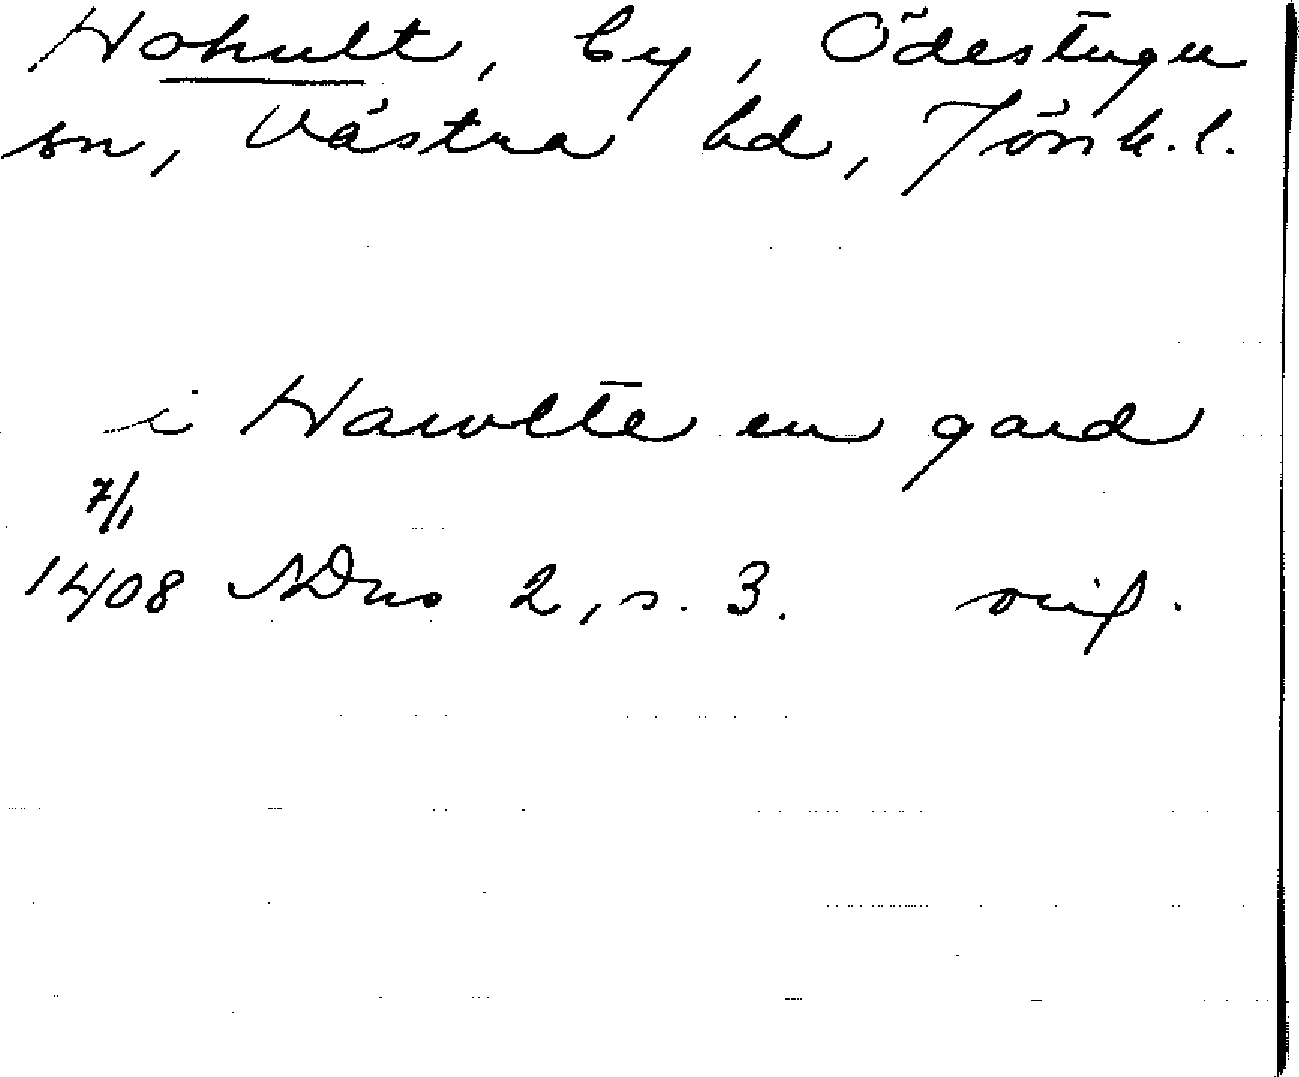 Hohult, by, Ödestugu
sn, Västra hd, Jönk.l.
i Hawlte en gard
7/1
1408 NDns 2, s. 3. orig.